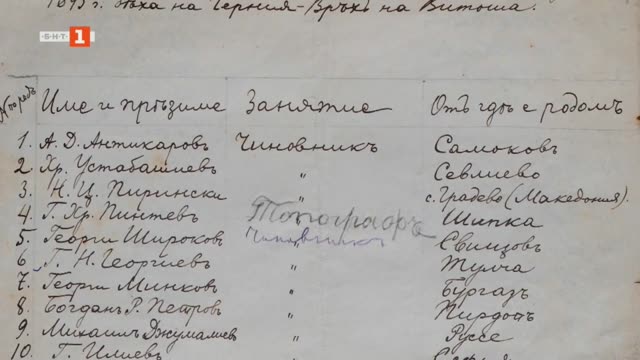 БНТ 1
1895 г. бѣха на Черния-Връхъ на Витоша.
№ по редъ Име и прѣзиме Занятие Отъ гдѣ е родомъ
1. А. Д. Антикаровъ Чиновникъ Самоковъ
2. Хр. Устабашиевъ " Севлиево
3. Н. Ц. Пирински " с. Градево (Македония).
4. Г. Хр. Пинтевъ Топографъ Шипка
5. Георги Широковъ Чиновникъ Свищовъ
6. Г. Н. Георгиевъ " Тулча
7. Георги Минковъ " Бургазъ
8. Богданъ Р. Петровъ " Пирдопъ
9. Михаилъ Джумалиевъ " Руссе
10. Г. Илиевъ "